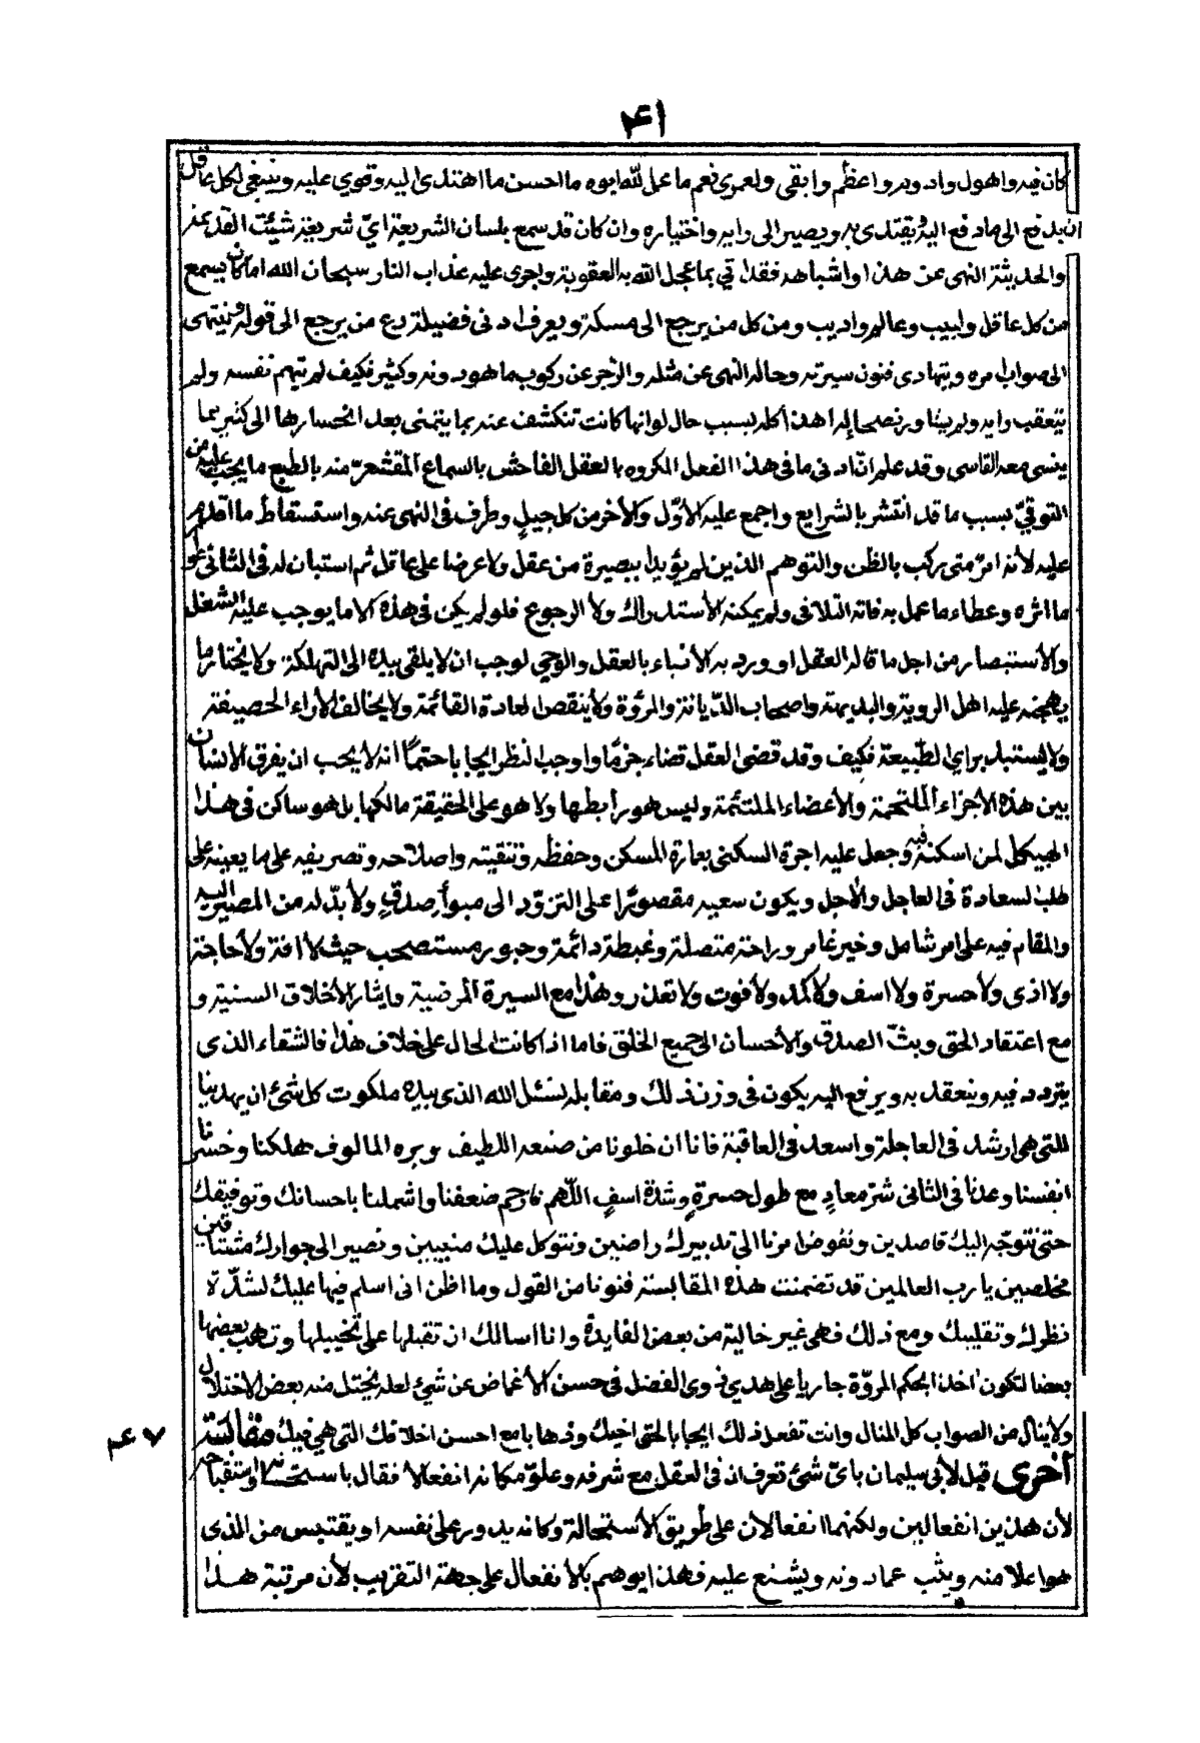 ٤١
كان فيه واهول وادور واعظم وابقى ولعمري نعم ما عمل لله ابوه ما احسن ما اهتدى اليه وقوي عليه وينبغى لكل عاقل
ان يدفع الى ما دفع اليه يقتدى به ويصير الى رايه واختياره وان كان قد سمع بلسان الشريعة ايّ شريعة شئت القديمة
والحديثة النهى عن هذا واشباهه فقد اتي بما عجل الله به العقوبة واجرى عليه عذاب النار سبحان الله اما كان يسمع
من كل عاقل ولبيب وعالم واديب ومن كل من يرجع الى مسكة ويعرف ادنى فضيلة دع من يرجع الى قوله وينتهى
الى صواب امره ويتهادى فنون سيرته وحاله النهى عن مثله والزجر عن ركوب ما هو دونه وكثير فكيف لم يتهم نفسه ولم
يتعقب رايه ولم يشاور نصحا له اهذا كله بسبب حال لو انها كانت تنكشف عنه بما يتمنى بعد انحسارها الى كثير مما
ينسى معه القاسى وقد علم ان ادنى ما فى هذا الفعل المكروه بالعقل الفاحش بالسماع المقشعرّ منه بالطبع ما يجب عليه من
التوقيّ بسبب ما قد انتشر بالشرايع واجمع عليه الأوّل والأخر من كل جيلٍ وطرف فى النهى عنه واستسقاط ما اقدم
عليه لأنه امر متى ركب بالظن والتوهم الذين لم يؤيدا ببصيرة من عقل ولا عرضا على عاقل ثم استبان له فى الثانى
ما اثره وعطاء ما عمل به فاته التلافى ولم يمكنه الأستدراك ولا الرجوع فلو لم يكن فى هذه الا ما يوجب عليه الشغل
والأستبصار من اجل ما قاله العقل او ورد به الأنباء بالعقل والوحي لوجب ان لا يلقى بيده الى التهلكة ولا يختار ما
يهجنه عليه اهل الروية والبديهة واصحاب الدّيانة والمرؤة ولا ينقص العادة القائمة ولا يخالف الأراء الحصيفة
ولا يستبد براي الطّبيعة فكيف وقد قضى العقل قضاء جزمًا واوجب النظر ايجابا حتمًا انه لا يجب ان يفرق الانسان
بين هذه الأجزاء الملتحمة والأعضاء الملتئمة وليس هو رابطها ولا هو على الحقيقة مالكها بل هو ساكن فى هذا
الهيكل لمن اسكنه فيه وجعل عليه اجرة السكنى بعمارة المسكن وحفظه وتنقيته واصلاحه وتصريفه على ما يعينه على
طلب السعادة فى العاجل والأجل ويكون سعيه مقصورًا على التزوّد الى مبوأ صدقٍ ولا بدّ له من المصير اليه
والمقام فيه على امر شامل وخير غامر وراحة متصلة وغبطة دائمة وحبور مستصحب حيث لا افة ولا حاجة
ولا اذى ولا حسرة ولا اسف ولا كمد ولا فوت ولا تعذر وهذا مع السيرة المرضية وايثار الأخلاق السنية و
مع اعتقاد الحق وبثّ الصدق والأحسان الى جميع الخلق فاما اذا كانت الحال على خلاف هذا فالشقاء الذى
يتردد فيه وينعقد به ويرفع اليه يكون فى وزن ذلك ومقابله نسئل الله الذى بيده ملكوت كل شئ ان يهدينا
للتى هى ارشد فى العاجلة واسعد فى العاقبة فانا ان خلونا من صنعه اللطيف وبره المالوف هلكنا وخسرنا
انفسنا وعدنا فى الثانى شرّ معادٍ مع طول حسرةٍ وشدة اسفٍ اللّهم فارحم ضعفنا واشملنا باحسانك وتوفيقك
حتى نتوجّه اليك قاصدين ونفوض امرنا الى تدبيرك راضين ونتوكل عليك منيبين ونصير الى جوارك مشتاقين
مخلصين يا رب العالمين قد تضمنت هذه المقابسة فنونا من القول وما اظن انى اسلم فيها عليك لشدّة
نظرك وتقليبك ومع ذلك فهى غير خالية من بعض الفايدة وانا اسالك ان تقبلها على تخييلها وتهب بعضها
بعضا لتكون اخذا بحكم المروّة جاريا على هدي ذوى الفضل فى حسن الأغماض عن شئ لعله يختل منه بعض الاختلال
ولا ينال من الصواب كل المنال وانت تفعل ذلك ايجابا لحق اخيك وذهابا مع احسن اخلاقك التى هى فيك مقابسة
٤٧
أخرى قيل لأبى سليمان باىّ شئ تعرف ان فى العقل مع شرفه وعلوّ مكانه انفعالا فقال باستحسانه واستقباحه
لأن هذين انفعالين ولكنهما انفعالان على طريق الأستحالة وكانه يدور على نفسه او يقتبس من الذى
هو اعلا منه ويثب عما دونه ويشنع عليه فهذا يوهم بالأنفعال على جهة التقريب لأن مرتبة هذا